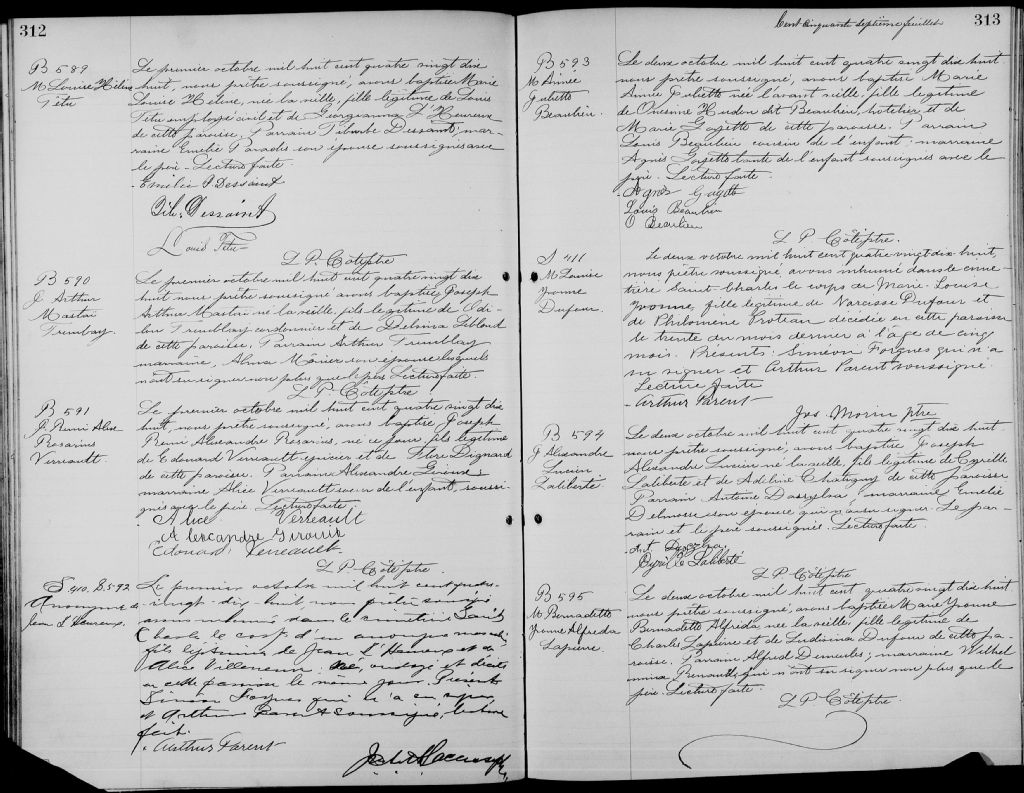 312
B 589
M Louise Hélène
Tétu
Le premier octobre mil huit cent quatre vingt dix
huit, nous prêtre soussigné, avons baptisé Marie
Louise Hélène, née la veille, fille légitime de Louis
Tétu employé civil et de Georgianna L'Heureux
de cette paroisse. Parrain Tiburbe Dessaint, mar-
raine Emélie Paradis son épouse soussignés avec
le père. Lecture faite.
Emélie P. Dessaint
Tib. Dessaint
Louis Tétu
L. P. Côté ptre
B 590
J. Arthur
Mastaï
Tremblay.
Le premier octobre mil huit cent quatre vingt dix
huit nous prêtre soussigné avons baptisé Joseph
Arthur Mastaï né la veille, fils légitime de Odi-
lon Tremblay cordonnier et de Delvina Leblond
de cette paroisse. Parrain Arthur Tremblay
marraine, Alma son épouse lesquels
n'ont su signer non plus que le père. Lecture faite.
L. P. Côté ptre
B 591
J. Remi Alex.
Rosarius
Verreault.
Le premier octobre mil huit cent quatre vingt dix
huit, nous prêtre soussigné, avons baptisé Joseph
Remi Alexandre Rosarius, né ce jour, fils légitime
de Edouard Verreault épicier et de Flore Dignard
de cette paroisse. Parrain Alexandre Giroux;
marraine Alice Verreault soeur de l'enfant, soussi-
gnés avec le père. Lecture faite
Alice Verreault
Alexandre Giroux
Edouard Verreault.
L. P. Côté ptre.
S 410 B 592
Anonyme de
Jean L'Heureux.
Le premier octobre mil huit cent quatre-
vingt-dix huit, nous prêtre soussigné
avons inhumé dans le cimetière Saint
Charles le corps d'un anonyme
fils légitime de Jean L'Heureux et de
Alice Villeneuve né, ondoyé et décédé
en cette paroisse le même jour. Présents
Siméon Forgues qui n'a su signer
et Arthur Parent soussigné, lecture
faite.
Arthur Parent
313
Cent cinquante septième feuillet
B 593
M Aimée
Juliette
Beaulieu.
Le deux octobre mil huit cent quatre vingt dix huit
nous prêtre soussigné, avons baptisé Marie
Aimée Juliette née l'avant veille, fille légitime
de Onesime Hudon dit Beaulieu, hôtelier et de
Marie Goyette de cette paroisse. Parrain
Louis Beaulieu cousin de l'enfant; marraine
Agnès Goyette tante de l'enfant soussignés avec le
père. Lecture faite.
Agnès Goyette
Louis Beaulieu
O Beaulieu
L. P. Côté ptre.
S 411
M Louise
Yvonne
Dufour.
Le deux octobre mil huit cent quatre vingt dix huit,
nous prêtre soussigné avons inhumé dans le cime-
tière Saint-Charles le corps de Marie-Louise
Yvonne, fille légitime de Narcisse Dufour et
de Philomène Protean décédée en cette paroisse
le trente du mois dernier à l'âge de cinq
mois. Présents: Siméon Forgues qui n'a
su signer et Arthur Parent soussigné.
Lecture faite
Arthur Parent
Jos Morin ptre
B 594
J Alexandre
Lucien
Laliberté
Le deux octobre mil huit cent quatre vingt dix huit
nous prêtre soussigné, avons baptisé Joseph
Alexandre Lucien né la veille, fils légitime de Cyrille
Laliberté et de Adeline Chatigny de cette paroisse
Parrain Antoine Dassylva, marraine Emélie
Delmosse son épouse qui n'a su signer. Le par-
rain et le père soussignés. Lecture faite.
Ant Dassylva
Cyrille Laliberté
L. P. Côté ptre
B 595
M. Bernadette
Yvonne Alfreda
Lapierre.
Le deux octobre mil huit cent quatre vingt dix huit
nous prêtre soussigné, avons baptisé Marie Yvonne
Bernadette Alfreda née la veille, fille légitime de
Charles Lapierre et de Ludivina Dufour de cette pa-
roisse. Parrain Alfred Demeules; marraine Wilhel-
mina Renaud, qui n'ont su signer non plus que le
père. Lecture faite.
L. P. Côté ptre.